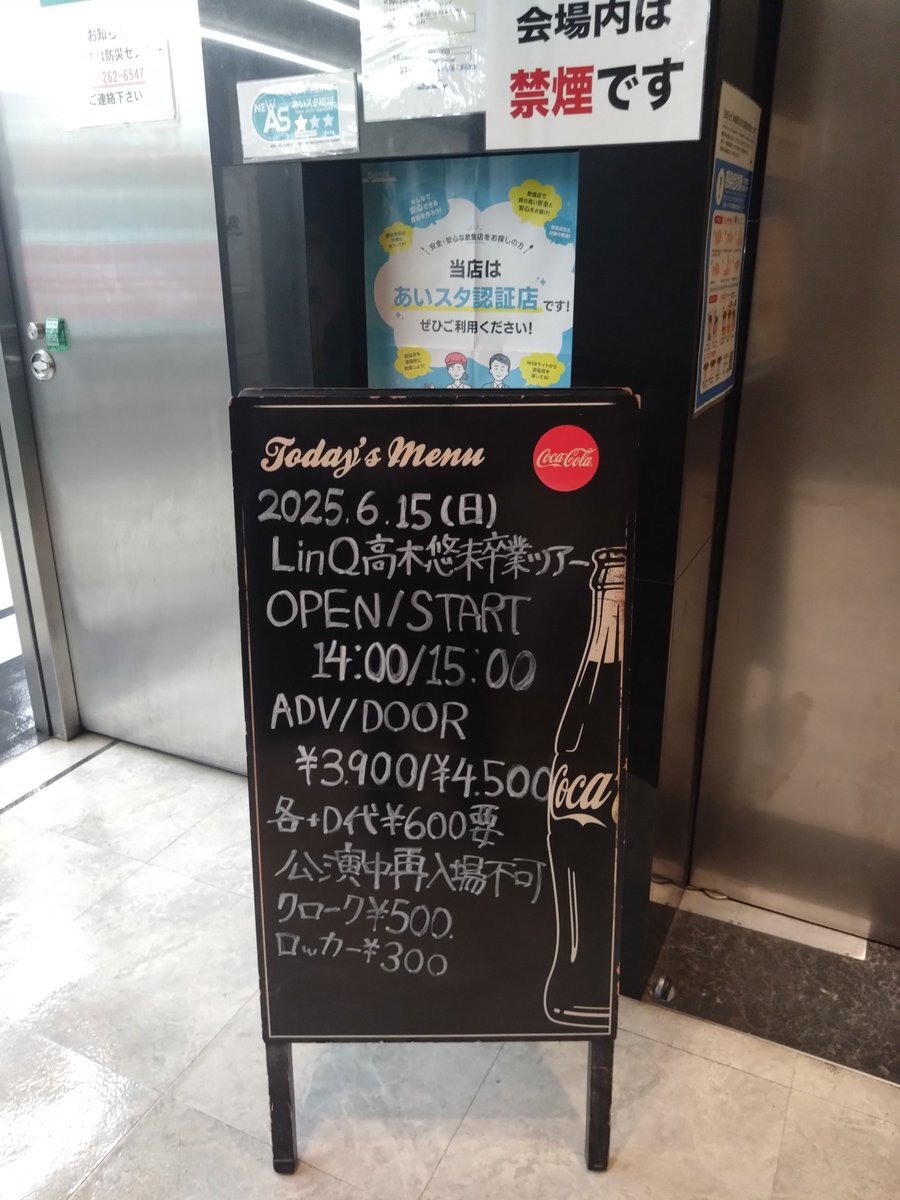 お知ら
は防災センター
262-6547
ご連絡下さい
NEW あいスタ認証
AS
会場内は
禁煙です
みんなで
安心できる
飲食店で
質の高い安全と
安心をお届け!
安全・安心な飲食店をお探しの方
当店は
あいスタ認証店です!
ぜひご利用ください!
WEBサイトから
Today's Menu
Coca-Cola
2025.6.15(日)
LinQ高木悠未卒業ツアー
OPEN/START
14:00/15:00
ADV/DOOR
¥3.900/¥4.500
各+D代¥600要
公演中再入場不可
クローク¥500.
ロッカー¥300
Coca